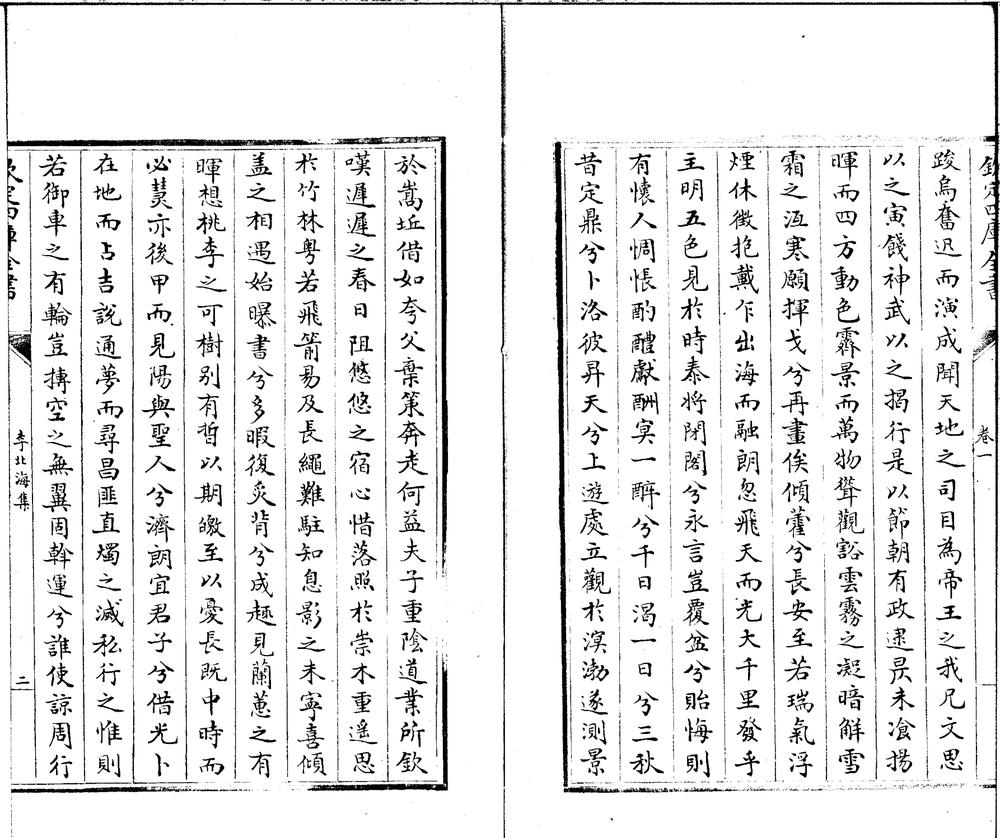 欽定四庫全書
卷一
踆烏奮迅而演成聞天地之司目為帝王之我兄文思
以之寅餞神武以之揭行是以節朝有政逮昃未飡揚
暉而四方動色霽景而萬物聳觀豁雲霧之凝暗解雪
霜之沍寒願揮戈兮再晝俟傾藿兮長安至若瑞氣浮
煙休徴抱戴乍出海而融朗忽飛天而光大千里發乎
主明五色見於時泰將閉閣兮永言豈覆盆兮貽悔則
有懷人惆悵酌醴獻酬冥一醉兮千日渴一日兮三秋
昔定鼎兮卜洛彼昇天兮上遊處立觀於溟渤遂測景
於嵩坵借如夸父棄策奔走何益夫子重陰道業所欽
嘆遲遲之春日阻悠悠之宿心惜落照於崇木重遥思
於竹林粤若飛箭易及長繩難駐知息影之未寧喜傾
盖之相遇始曝書兮多暇復炙背兮成趣見蘭蕙之有
暉想桃李之可樹别有哲以期皦至以憂長既中時而
必熭亦後甲而見陽與聖人兮濟朗宜君子兮借光卜
在地而占吉說通夢而尋昌匪直燭之滅私行之惟則
若御車之有輪豈摶空之無翼固斡運兮誰使諒周行
欽定四庫全書
李北海集
二